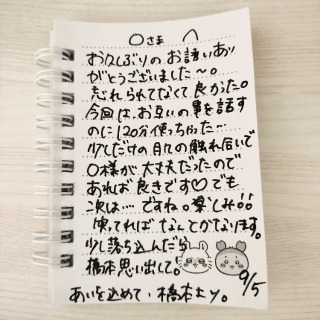 〇さま へ
お久しぶりの お誘いあり
がとうございました〜。
忘れられてなくて良かった。
今回は、お互いの事を話す
のに120分使っちゃった…
少しだけの肌の触れ合いで
〇様が大丈夫だったので
あれば良きです♡ でも
次は…ですね。楽しみ!!
笑ってればなんとかなります。
少し落ち込んだら
橋本思い出して。
9/5
あいを込めて、橋本より。